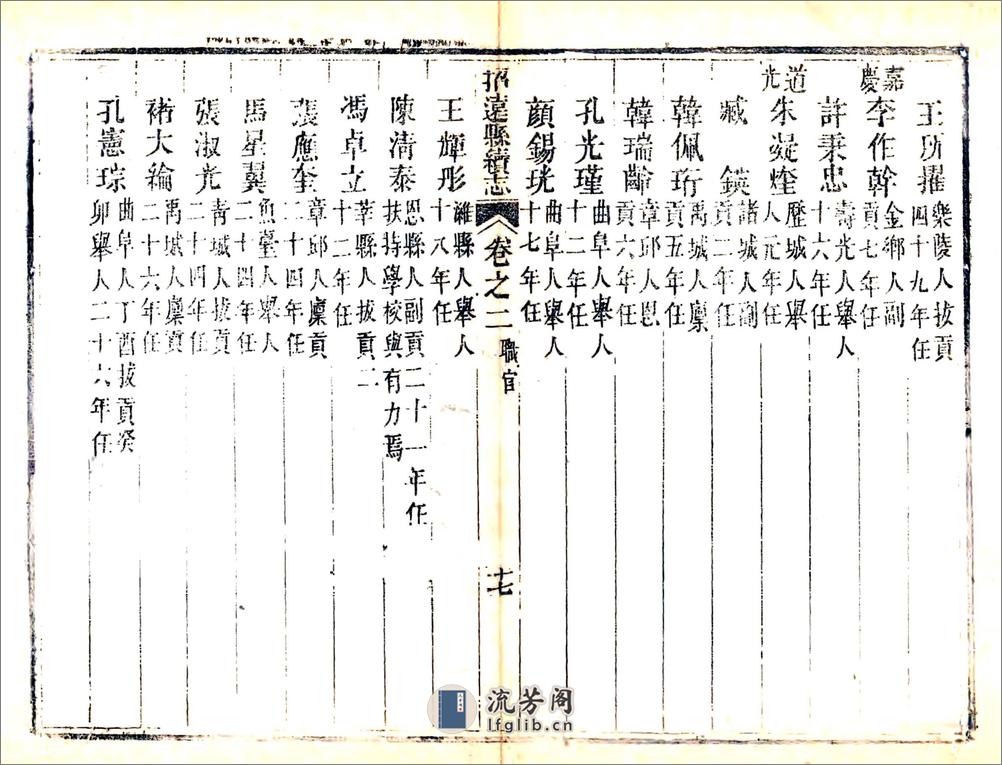 王所擢 樂陵人拔貢四十九年任
嘉慶 李作幹 金鄉人副貢七年任
許秉忠 壽光人舉人十六年任
道光 朱凝煃 歷城人舉人元年任
臧鍈 諸城人副貢二年任
韓佩珩 禹城人廩貢五年任
韓瑞齡 章邱人恩貢六年任
孔光瑾 曲阜人舉人十二年任
顏錫珖 曲阜人舉人十七年任
招遠縣續志 卷之二 職官 十七
王輝彤 濰縣人舉人十八年任
陳清泰 恩縣人副貢二十一年任扶持學校與有力焉
馮卓立 莘縣人拔貢二十二年任
張應奎 章邱人廩貢二十四年任
馬星翼 魚臺人舉人二十四年任
張淑光 青城人拔貢二十四年任
褚大綸 禹城人廩貢二十六年任
孔憲琮 曲阜人丁酉拔貢癸卯舉人二十六年任
流芳阁
lfglib.cn